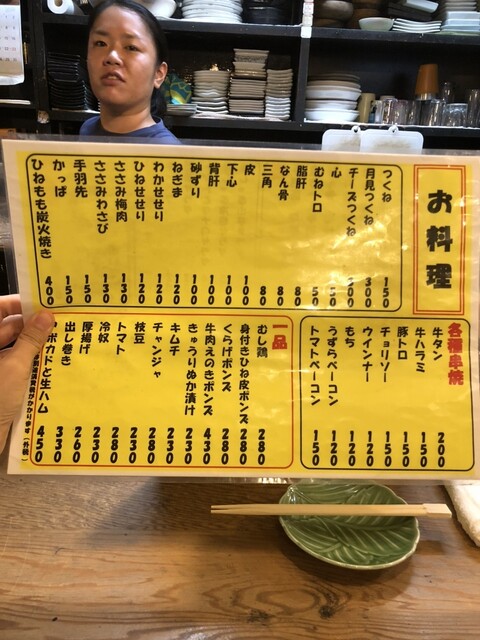 お料理
つくね 150
月見つくね 300
チーズつくね 200
心
むねトロ 50
脂肝 80
なん骨 80
三角 80
皮 100
下心 100
背肝 100
砂ずり 100
ねぎま 120
わかせせり 120
ひねせせり 120
ささみ梅肉 130
ささみわさび 130
手羽先 150
かっぱ 150
ひねもも炭火焼き 400
各種串焼
牛タン 200
牛ハラミ 150
豚トロ 150
チョリソー 150
ウインナー 120
もち 120
うずらベーコン 150
トマトベーコン 150
一品
むし鶏 280
身付きひね皮ポンズ 280
くらげポンズ 280
牛肉えのきポンズ 430
きゅうりぬか漬け 230
キムチ 230
チャンジャ 280
枝豆 280
トマト 280
冷奴 230
厚揚げ 260
出し巻き 330
ボカドと生ハム 450
費税がかかります（外税）